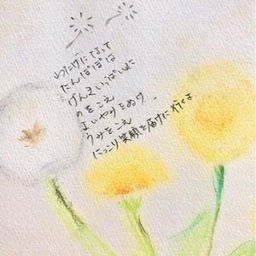 わたげになって
たんぽぽは
げんきいっぱいに
のをこえ
まいやみをぬけ
うみをこえ
にっこり笑顔を届けに行くよ